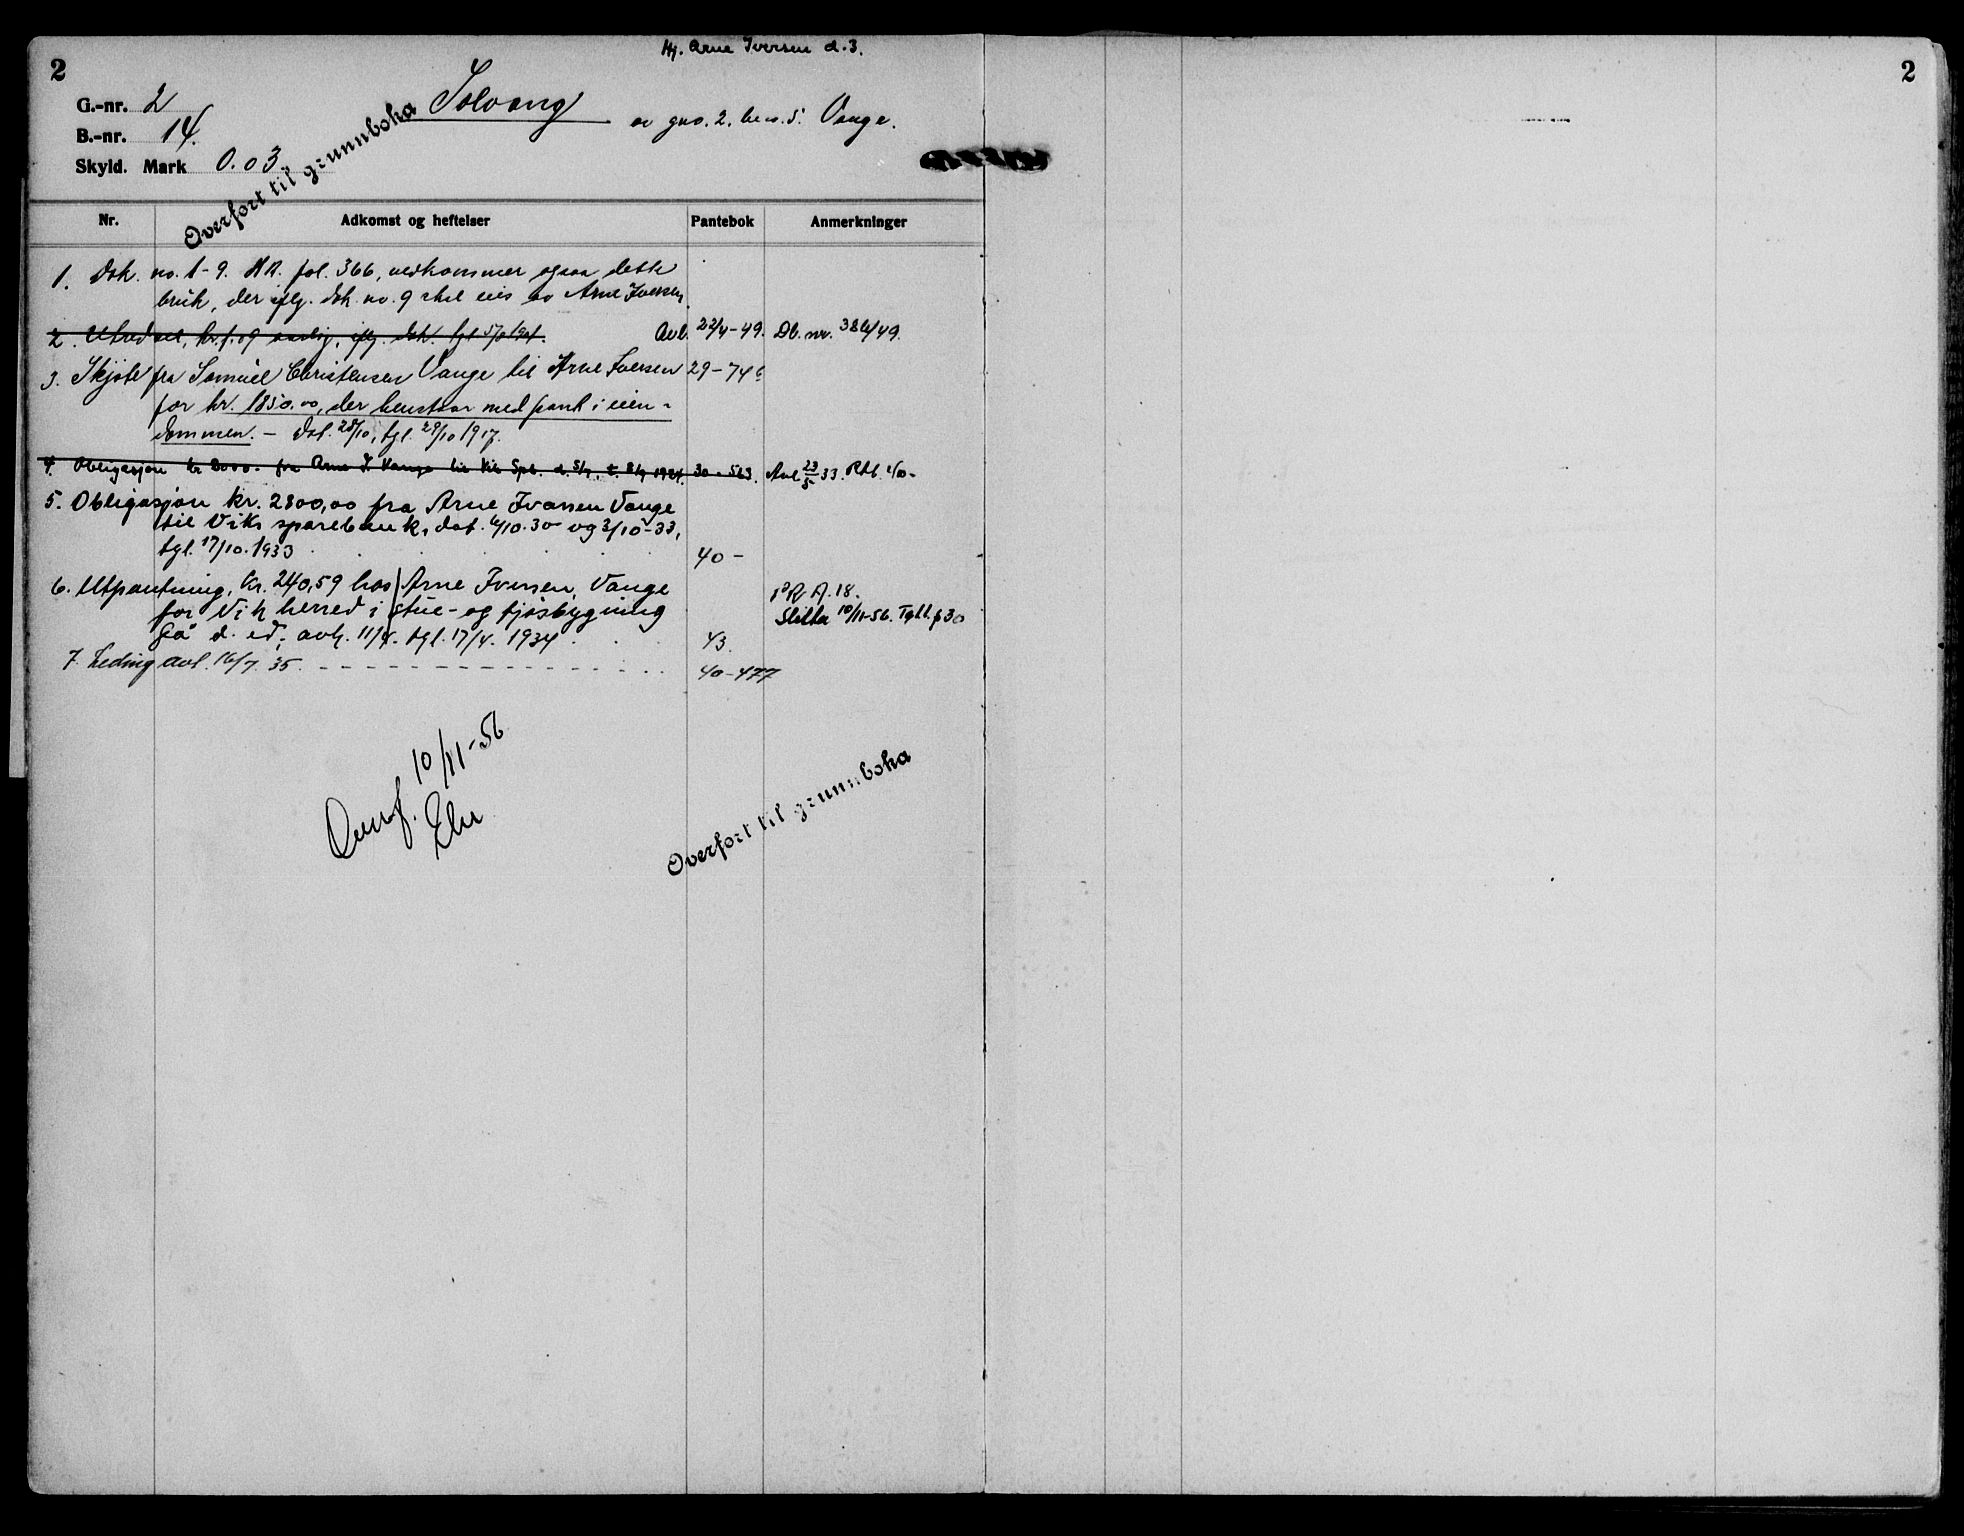 Hj. Arne Iversen d. 3.
2
2
G.-nr. 2
Solvang
av gno. 2. bno. 5. Vange.
B.-nr. 14.
Skyld. Mark 0.03
Overført til grunnboka
Nr. Adkomst og heftelser Pantebok Anmerkninger
1. Dok. no. 1-9. fol. 366, vedkommer ogsaa dette
bruk, der iflg. dok. no. 9 skal eies av Arne Iversen.
2. kr. 1.09 aarlig, iflg. dok. tgl. Avl. 22/4-49. Db. nr. 386/49.
3. Skjøte fra Samuel Christensen Vange til Arne Iversen 29-746
for kr. 1850.00, der henstaar med pant i eien-
dommen. - Dat. 28/10, tgl. 29/10 1917.
4. Obligasjon kr 2000.- fra Arne I. Vange til Vik Spb. d. 5/9, t. 8/9 1924. 30-563. Avl 23/5 33. Rtb. 40-
5. Obligasjon kr. 2800,00 fra Arne Iversen Vange
til Viks sparebank, dat. 6/10.30 og 3/10-33,
tgl. 17/10.1933 40-
6. Utpantning, kr. 240,59 hos Arne Iversen, Vange
for Vik herred i stue- og fjøsbygning P.R. A. 18.
på d. ed; avh. 11/4. tgl. 17/4. 1934 43. Sletta 10/11-56. Tght. § 30
7. Leding avl. 16/7. 35. 40-477
Overf. 10/11-56
Overført til grunnboka